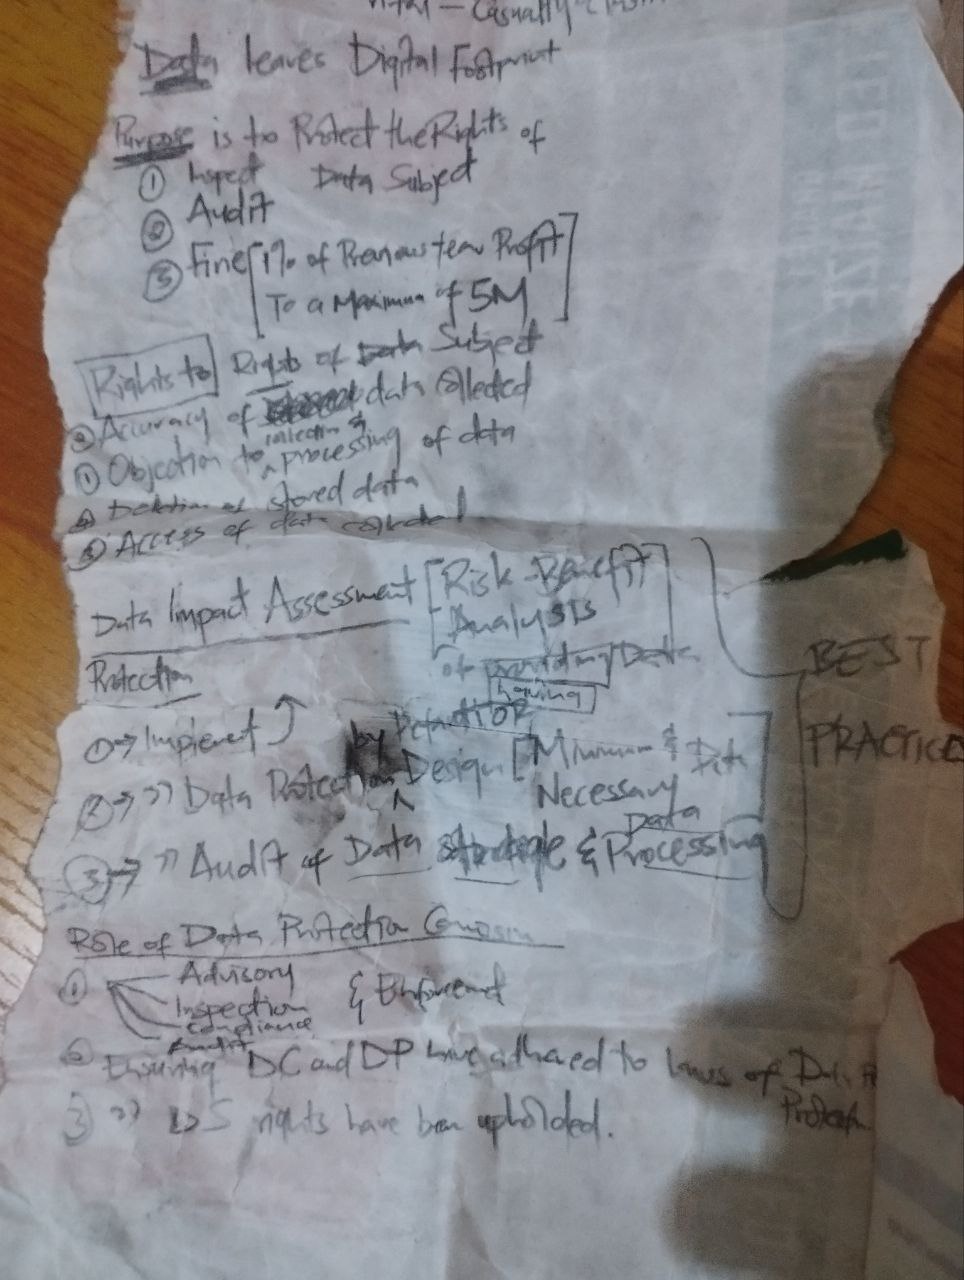 Data leaves Digital Footprint
Purpose is to Protect the Rights of
① Inspect Data Subject
② Audit
③ Fine [1% of Previous Year Profit
To a Maximum of 5M]
Rights to Rights of Data Subject
② Accuracy of data collected
collection &
① Objection to ^ processing of data
④ Deletion of stored data
③ Access of data collected
Data Impact Assessment [Risk-Benefit
Analysis]
of providing Data
Protection
having
① → Implement
by Default OR
② → " Data Protection ^ Design [Minimum &
Necessary Data]
③ → " Audit of Data Storage & Processing
BEST
PRACTICE
Role of Data Protection
① Advisory
Inspection & Enforcement
Compliance
Audit
② Ensuring DC and DP have adhered to laws of Data
Protection
3 " DS rights have been upholded.